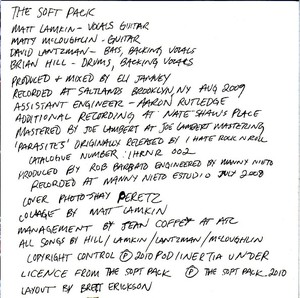 THE SOFT PACK
MATT LAMKIN - VOCALS GUITAR
MATTY McLOUGHLIN - GUITAR
DAVID LANTZMAN - BASS, BACKING VOCALS
BRIAN HILL - DRUMS, BACKING VOCALS
PRODUCED + MIXED BY ELI JANNEY
RECORDED AT SALTLANDS BROOKLYN, NY AUG 2009
ASSISTANT ENGINEER - AARON RUTLEDGE
ADDITIONAL RECORDING AT NATE SHAWS PLACE
MASTERED BY JOE LAMBERT AT JOE LAMBERT MASTERING
'PARASITES' ORIGINALLY RELEASED BY I HATE ROCK N ROLL
CATALOGUE NUMBER: IHRNR 002
PRODUCED BY ROB BARBATO ENGINEERED BY MANNY NIETO
RECORDED AT MANNY NIETO ESTUDIO JULY 2008
COVER PHOTO SHAY PERETZ
COLLAGE BY MATT LAMKIN
MANAGEMENT BY JEAN COFFEY AT ATC
ALL SONGS BY HILL/LAMKIN/LANTZMAN/McLOUGHLIN
COPYRIGHT CONTROL ℗ 2010 POD/INERTIA UNDER
LICENCE FROM THE SOFT PACK ℗ THE SOFT PACK 2010
LAYOUT BY BRETT ERICKSON